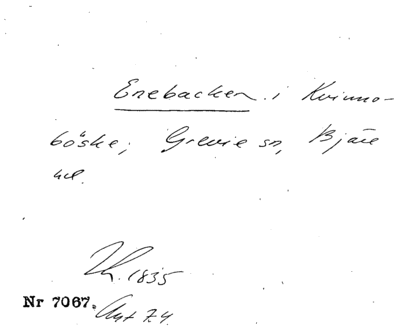 Enebacken i Kvinno-
böske, Grevie sn, Bjäre
hd.
Lh. 1835
Nr 7067. Avt 74